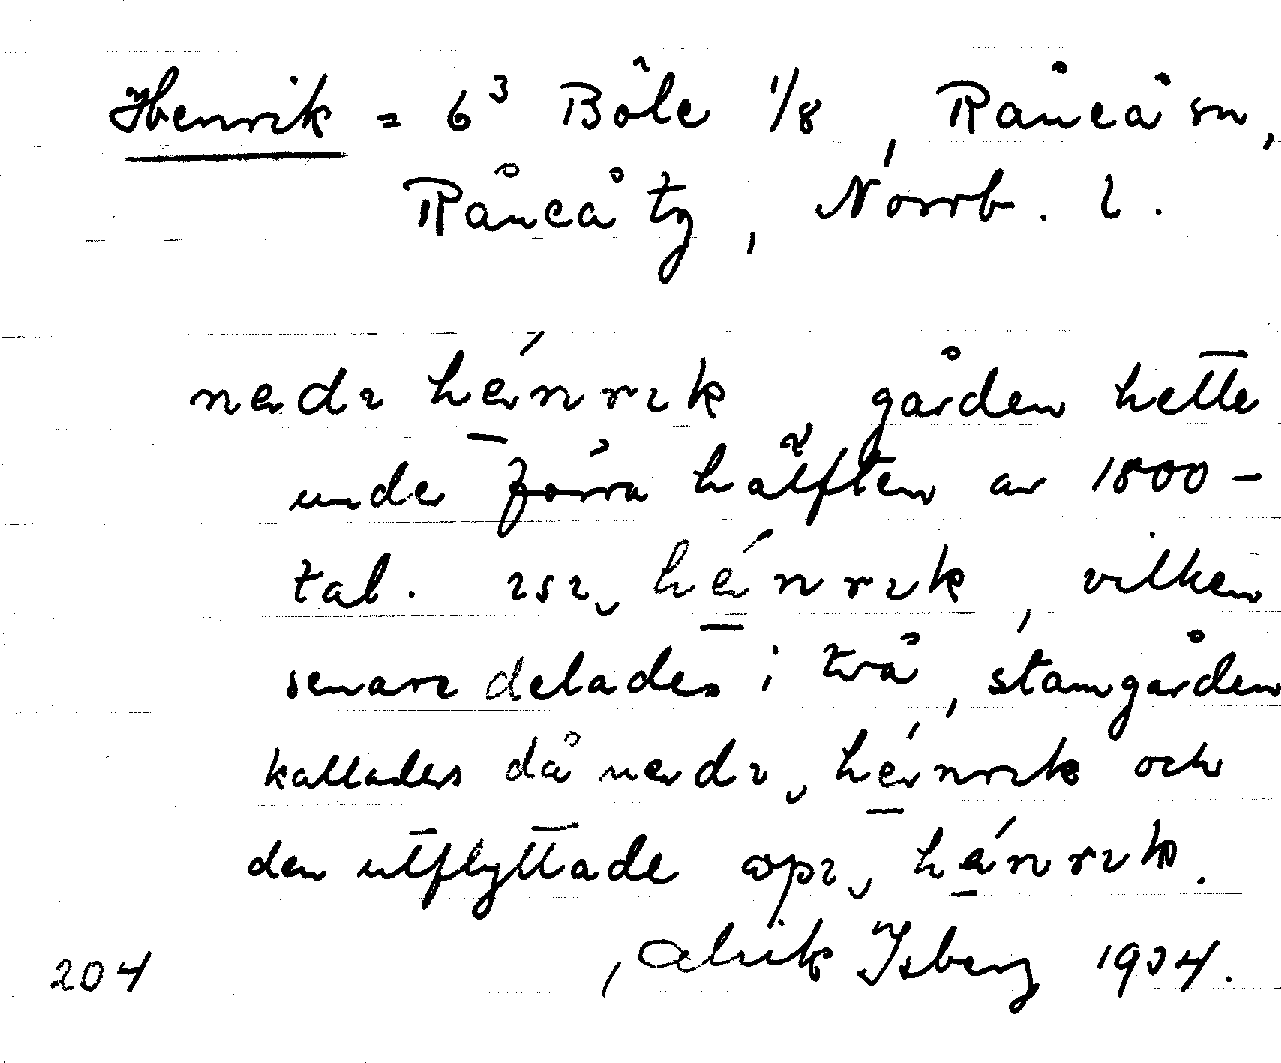 Henrik = 6³ Böle 1/8, Råneå sn,
Råneå tg, Norrb. l.
nedɩ hénrɩk gården hette
unde förra hälften av 1800-
tal. ɩsɩ hénrɩk, vilken
senare delades i två, stamgården
kallades då nedɩ hénrɩk och
den utflyttade opɩ hénrɩk.
Alrik Isberg 1934.
204